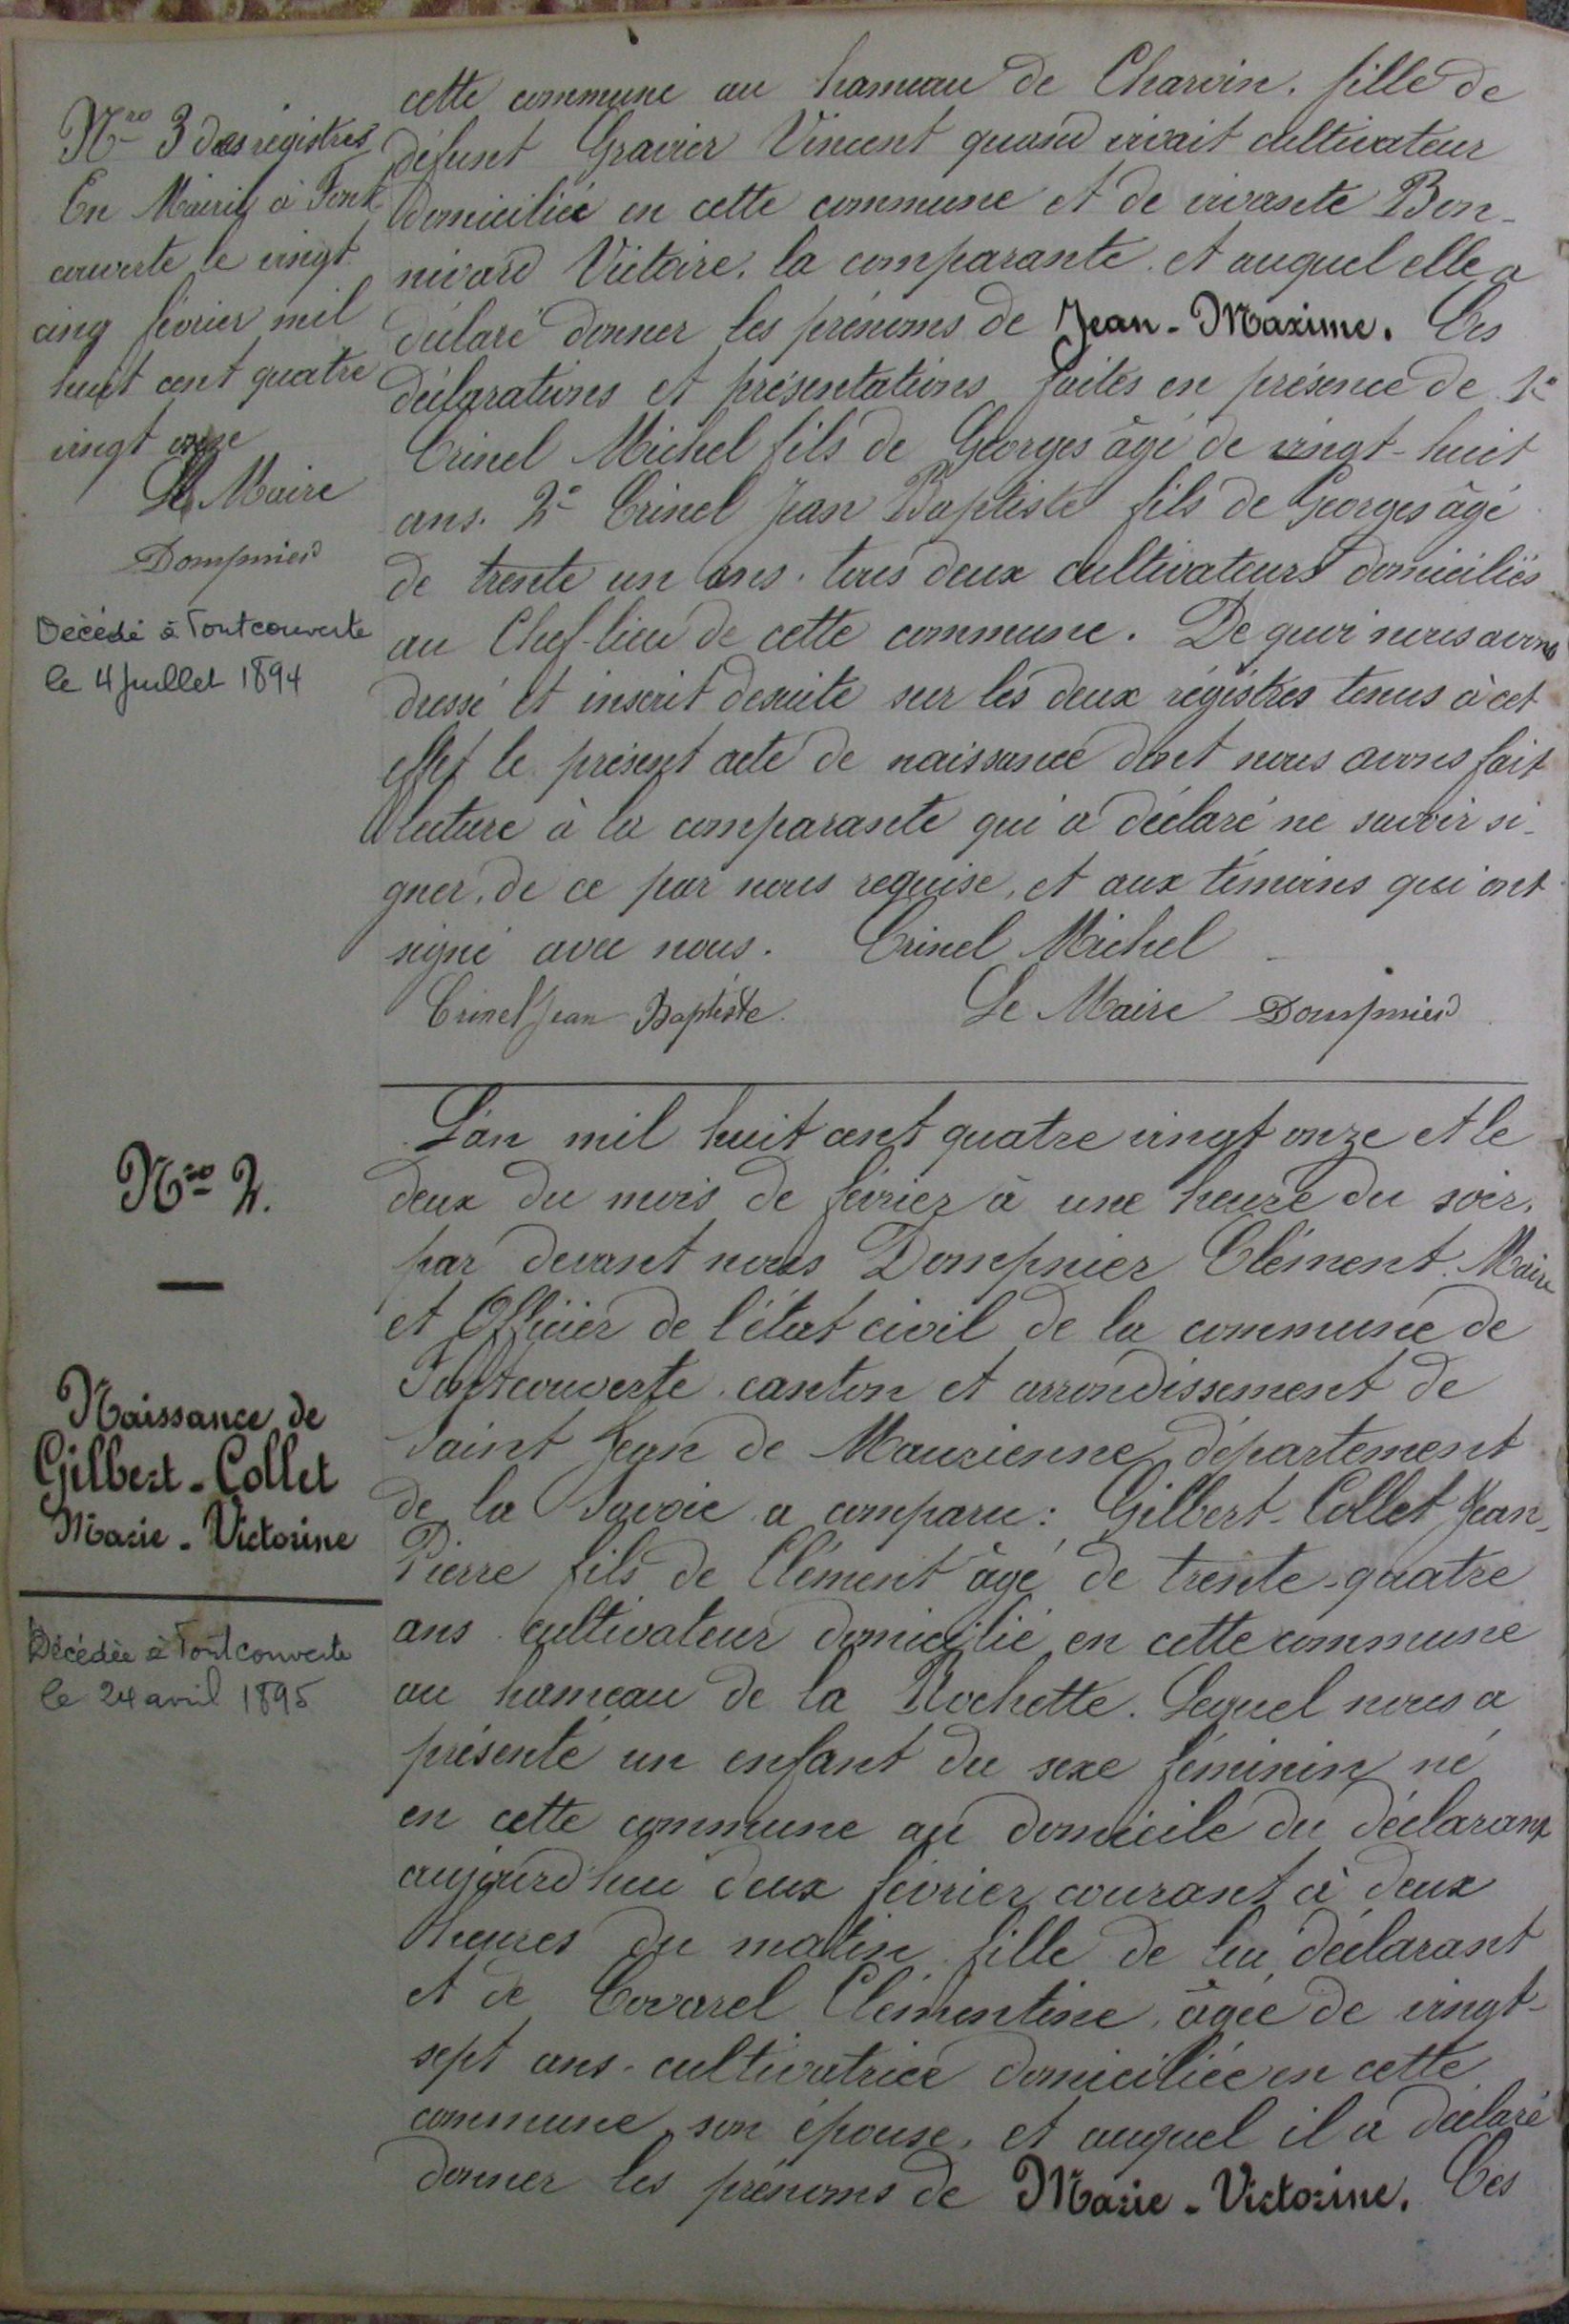 Nro 3 des registres
En Mairie à Font
couverte le vingt
cinq février mil
huit cent quatre
vingt onze
Le Maire
Dompnier
Décédé à Fontcouverte
le 4 Juillet 1894
cette commune au hameau de Charvin. fille de
défunt Gravier Vincent quand vivait cultivateur
domiciliée en cette commune et de vivante Bon-
nivard Victoire. la comparante. et auquel elle a
déclaré donner les prénoms de Jean-Maxime. Ces
déclarations et présentations faites en présence de 1º
Crinel Michel fils de Georges âgé de vingt-huit
ans. 2º Crinel Jean Baptiste fils de Georges âgé
de trente un ans. tous deux cultivateurs domiciliés
au Chef-lieu de cette commune. De quoi nous avons
dressé et inscrit desuite sur les deux régistres tenus à cet
effet le présent acte de naissance dont nous avons fait
lecture à la comparante qui a déclaré ne savoir si-
gner, de ce par nous requise, et aux témoins qui ont
signé avec nous. Crinel Michel
Crinel Jean Baptiste. Le Maire Dompnier
Nro 2.
Naissance de
Gilbert-Collet
Marie-Victorine
Décédée à Fontcouverte
le 24 avril 1895
L'an mil huit cent quatre vingt onze et le
deux du mois de février à une heure du soir.
par devant nous Dompnier Clément Maire
et Officier de l'état civil de la commune de
Fontcouverte. canton et arrondissement de
Saint Jean de Maurienne département
de la Savoie a comparu: Gilbert-Collet Jean-
Pierre fils de Clément âgé de trente-quatre
ans cultivateur domicilié en cette commune
au hameau de la Rochette. Lequel nous a
présenté un enfant du sexe féminin né
en cette commune au domicile du déclarant
aujourd'hui deux février courant à deux
heures du matin fille de lui déclarant
et de Covarel Clémentine, âgée de vingt-
sept ans. cultivatrice domiciliée en cette
commune, son épouse, et auquel il a déclaré
donner les prénoms de Marie-Victorine. Ces